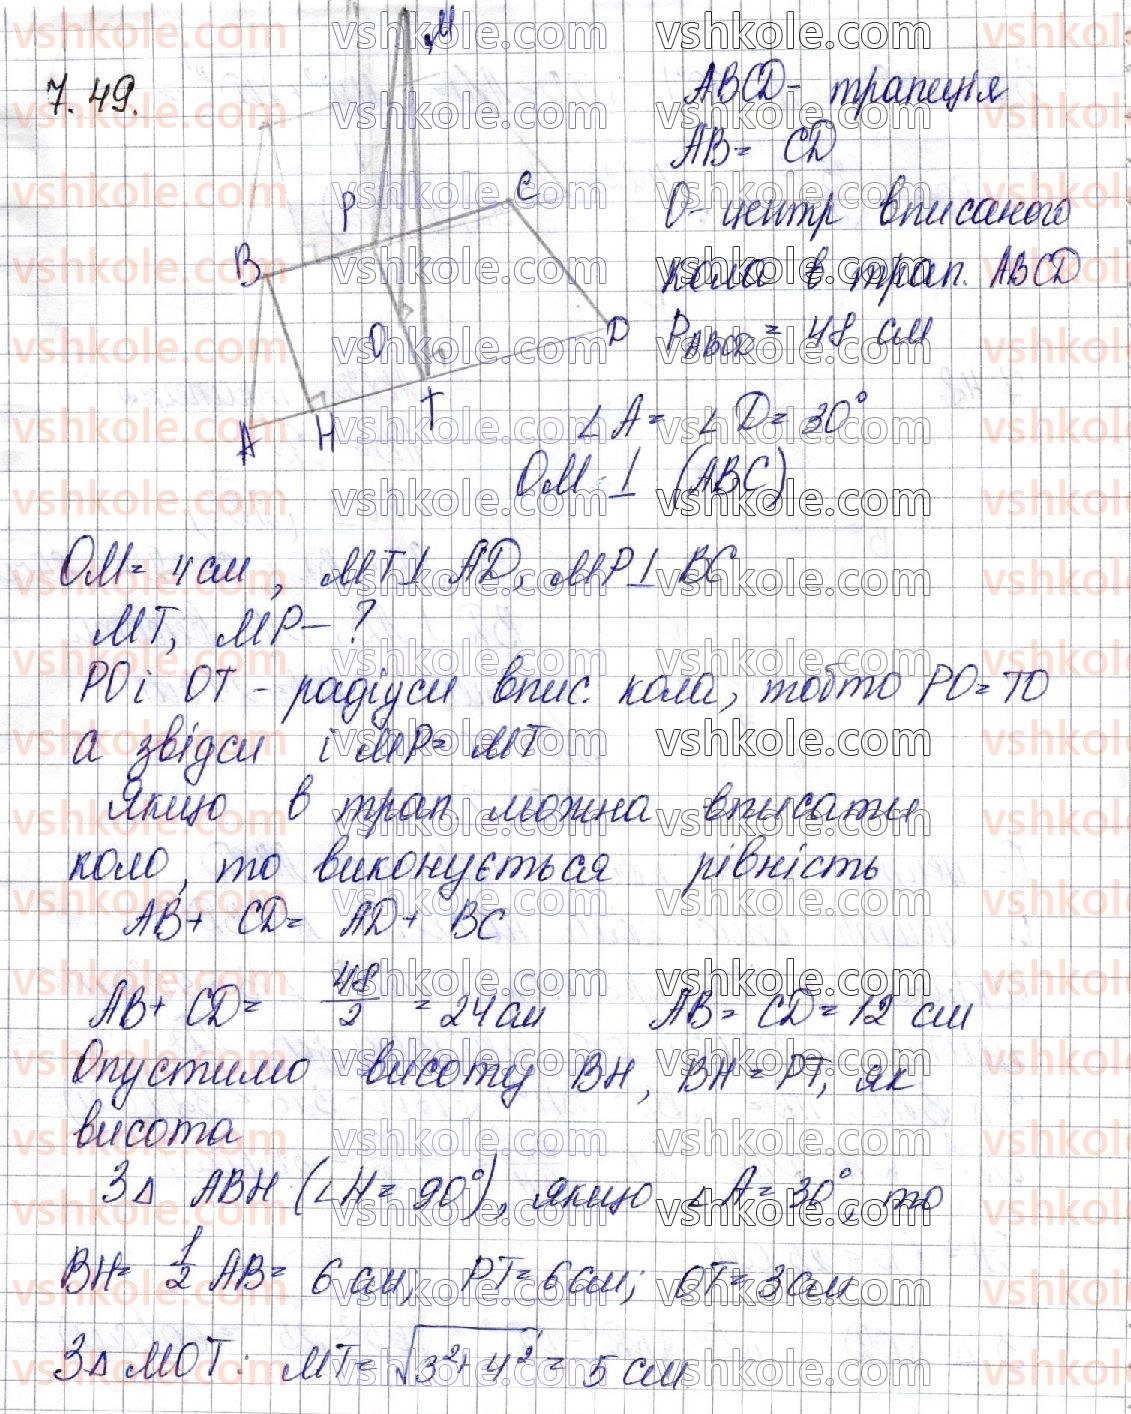 7.49.
M
P
C
B
O
D
A
H
T
ABCD - трапеція
AB = CD
O - центр вписаного
кола в трап. ABCD
P ABCD = 48 см
∠A = ∠D = 30°
OM ⊥ (ABC)
OM = 4 см, MT ⊥ AD, MP ⊥ BC
MT, MP - ?
PO і OT - радіуси впис. кола, тобто PO = TO
а звідси і MP = MT
Якщо в трап. можна вписати
коло, то виконується рівність
AB + CD = AD + BC
AB + CD = 48/2 = 24 см AB = CD = 12 см
Опустимо висоту BH, BH = PT, як
висота
З Δ ABH (∠H = 90°), якщо ∠A = 30°, то
BH = 1/2 AB = 6 см; PT = 6 см; OT = 3 см
З Δ MOT: MT = √(3² + 4²) = 5 см
vshkole.com